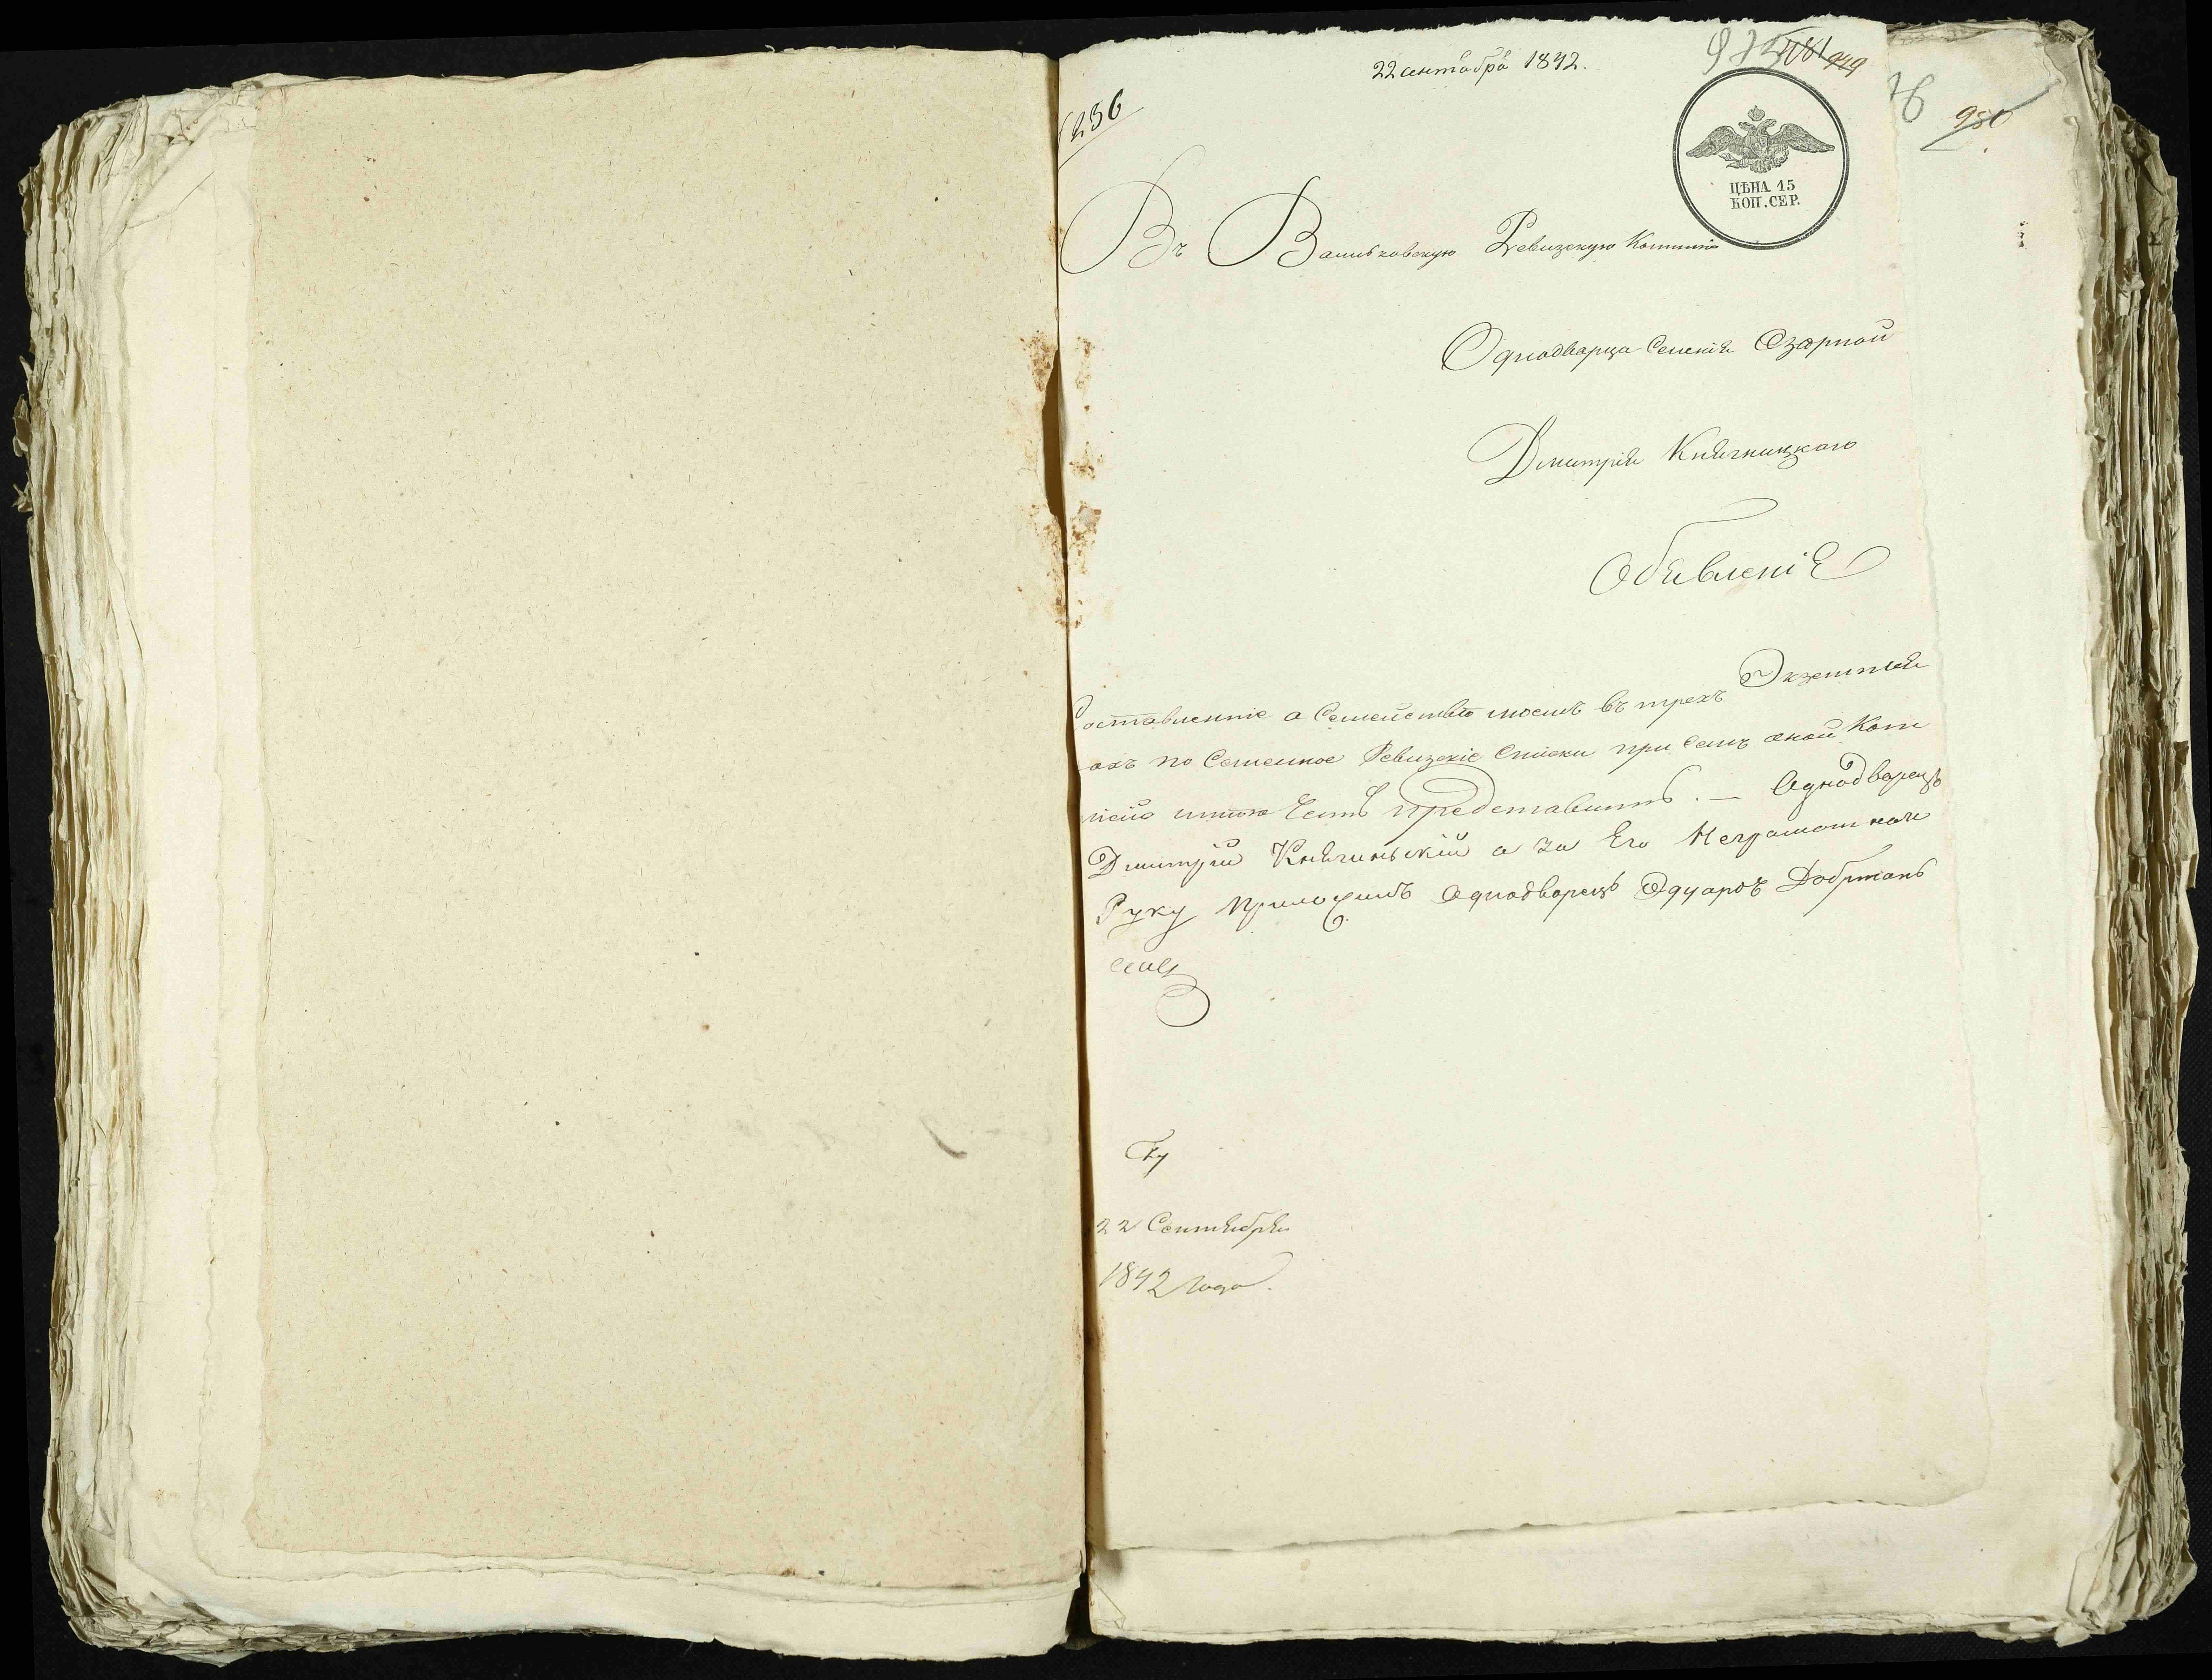 22 сентября 1842.
1236
949
980
ЦѢНА 15
КОП. СЕР.
Въ Васильковскую Ревизскую Комисію
Однодворца Селенія Озѣрной
Дмитрія Княгницкаго
Обявленіе
Составленніе о Семействѣ моемъ въ трехъ Экземпля
рахъ по Семейное Ревизскіе Списки при семъ оной Ком
мисіи имѣю Честь представить. — Однодворецъ
Дмитрій Княгиньскій а за Его Неграмотного
Руку приложилъ Однодворецъ Эдуардъ Добржань
скій
22 Сентября
1842 Года.